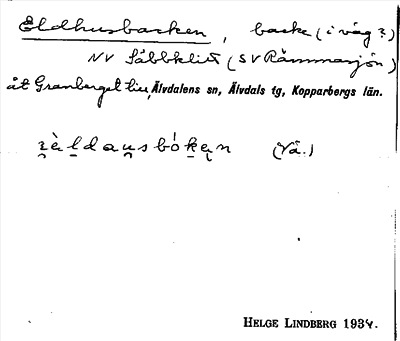 Eldhusbacken, backe (i väg?)
NV Såbbklitt (SV Rämmasjön)
åt Granberget till, Älvdalens sn, Älvdals tg, Kopparbergs län.
(Vå.)
HELGE LINDBERG 1934.